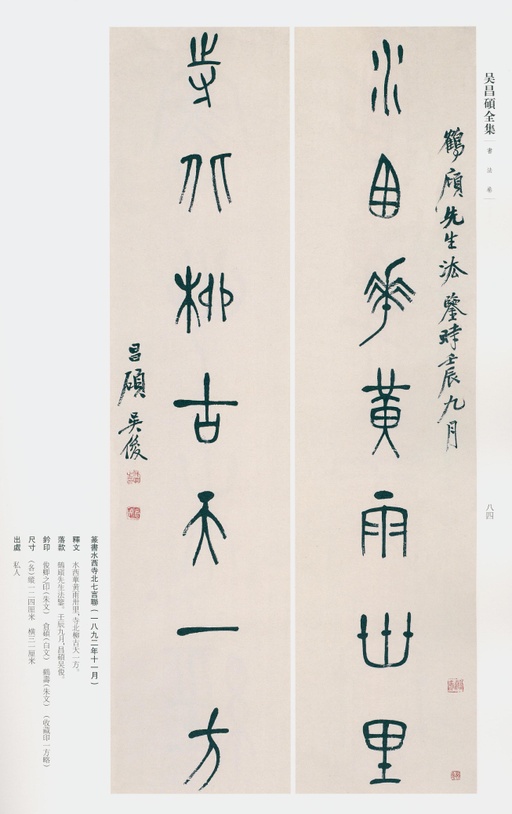 吴昌碩全集
書法卷
鶴廎先生法鑒時壬辰九月
水西華黃雨卅里
寺北柳古天一方
昌碩吴俊
八四
篆書水西寺北七言聯(一八九二年十一月)
釋文 水西華黃雨卅里,寺北柳古天一方。
落款 鶴廎先生法鑒。壬辰九月,昌碩吴俊。
鈐印 俊卿之印(朱文) 倉碩(白文) 鶴壽(朱文) (收藏印一方略)
尺寸 (各)縱一二四厘米 橫三一厘米
出處 私人